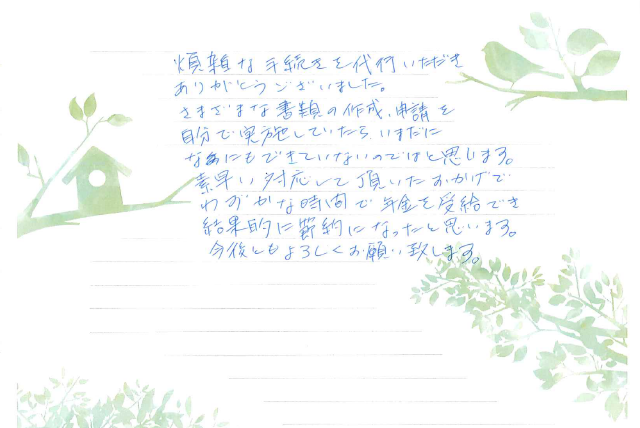 煩雑な手続きを代行いただき
ありがとうございました。
さまざまな書類の作成、申請を
自分で実施していたら、いまだに
なあにもできていないのではと思います。
素早い対応して頂いたおかげで
わずかな時間で年金を受給でき
結果的に節約になったと思います。
今後ともよろしくお願い致します。